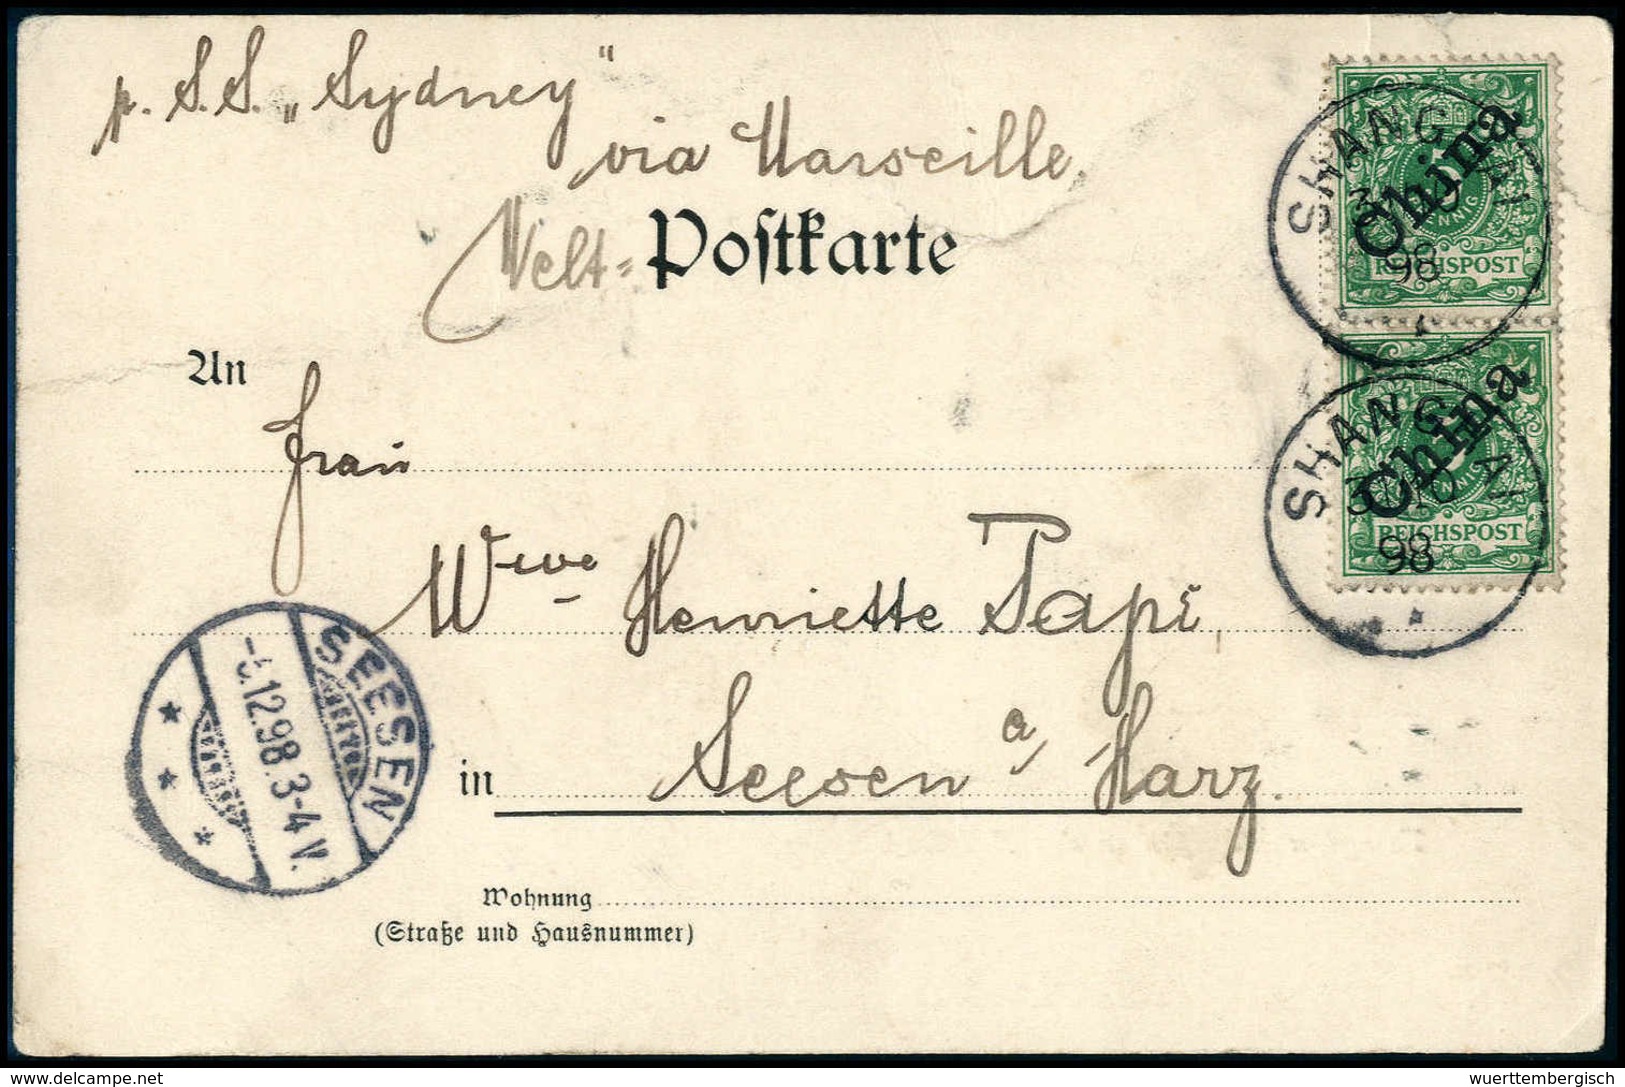 p. S.S. „Sydney"
via Marseille
Welt- Postkarte
An
Frau
Wwe Henriette Papi
in Seesen a/ Harz.
Wohnung
(Straße und Hausnummer)
China
REICHSPOST
SHANGHAI
98
China
PFENNIG
REICHSPOST
SHANGHAI
98
SEESEN
12.98.3-4V.
delcampe.net
wuerttembergisch